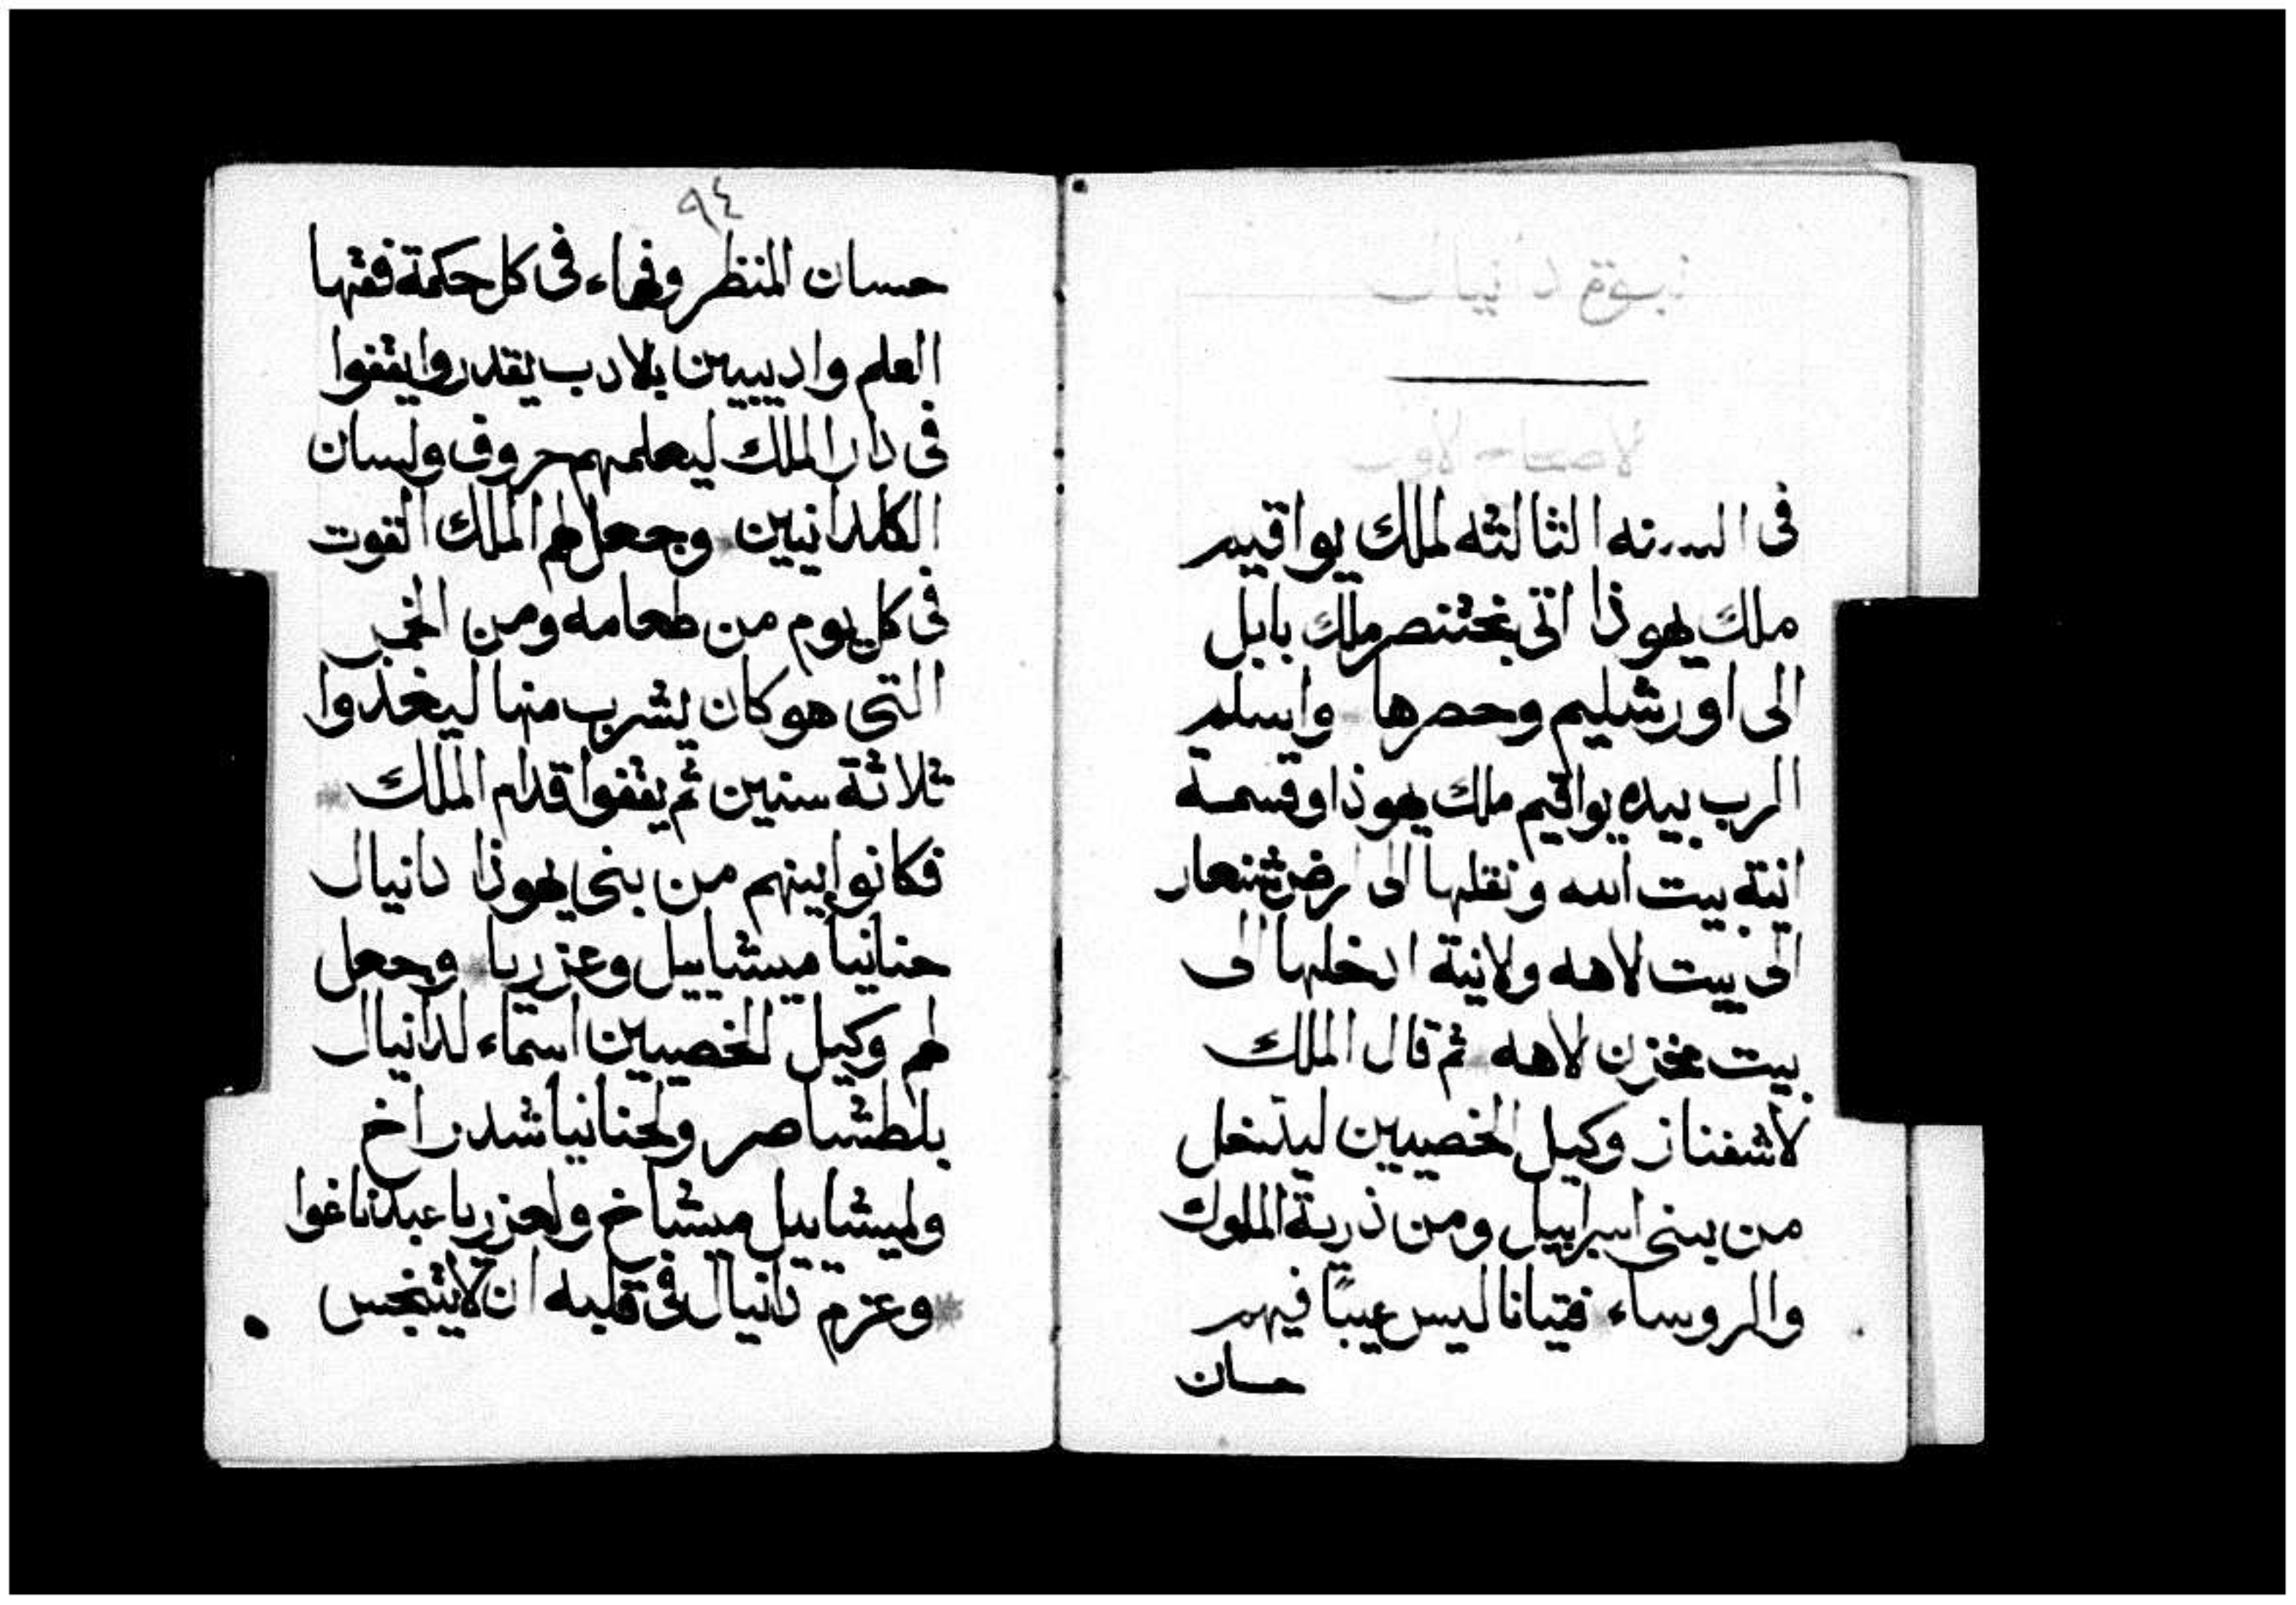 نبوة دانيال
الاصحاح الاول
فى السنه الثالثه لملك يواقيم
ملك يهوذا اتى بختنصر ملك بابل
الى اورشليم وحصرها واسلم
الرب بيده يواقيم ملك يهوذا وقسمة
انية بيت الله ونقلها الى ارض شنعار
الى بيت لاهه ولانية ادخلها الى
بيت مخزن لاهه ثم قال الملك
لاشفناز وكيل الخصيين ليدخل
من بنى اسراييل ومن ذرية الملوك
والروساء فتيانا ليس عيبًا فيهم
حسان
٩٤
حسان المنظر وفهماء فى كل حكمة فقها
العلم واديبين بلادب يقدروا يقفوا
فى دار الملك ليعلمهم حروف ولسان
الكلدانيين وجعل لهم الملك القوت
فى كل يوم من طعامه ومن الخمر
التى هو كان يشرب منها ليغذوا
ثلاثة سنين ثم يقفوا قدام الملك
فكانوا بينهم من بنى يهوذا دانيال
حنانيا ميشاييل وعزريا وجعل
لهم وكيل الخصيين اسماء لدانيال
بلطشاصر ولحنانيا شدراخ
ولميشاييل ميشاخ ولعزريا عبدناغوا
وعزم دانيال فى قلبه ان لا يتنجس